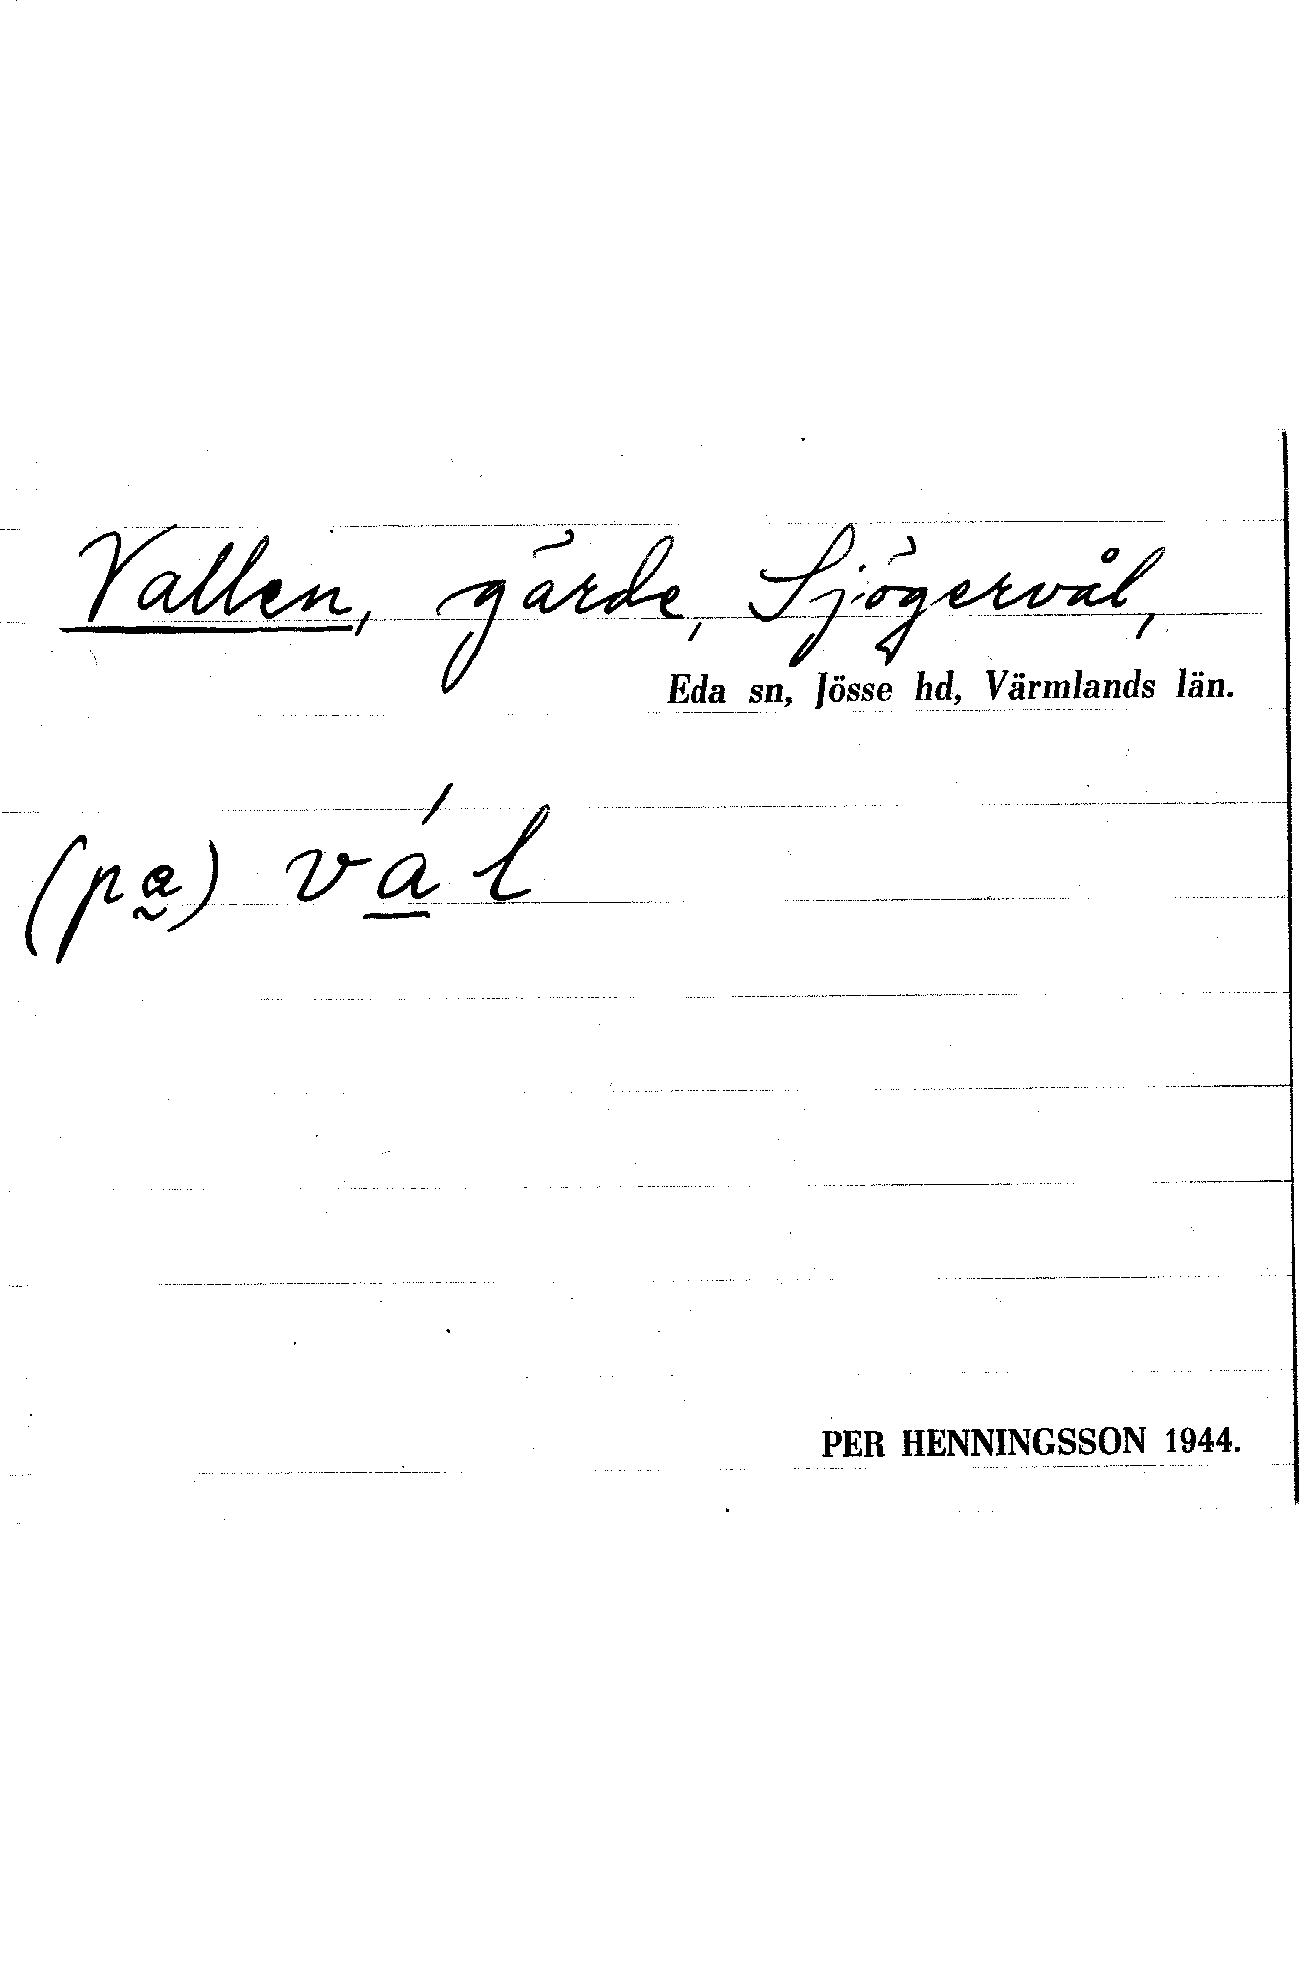 Vallen, gärde, Sjögervål,
Eda sn, Jösse hd, Värmlands län.
(pa̰) vá̱l
PER HENNINGSSON 1944.